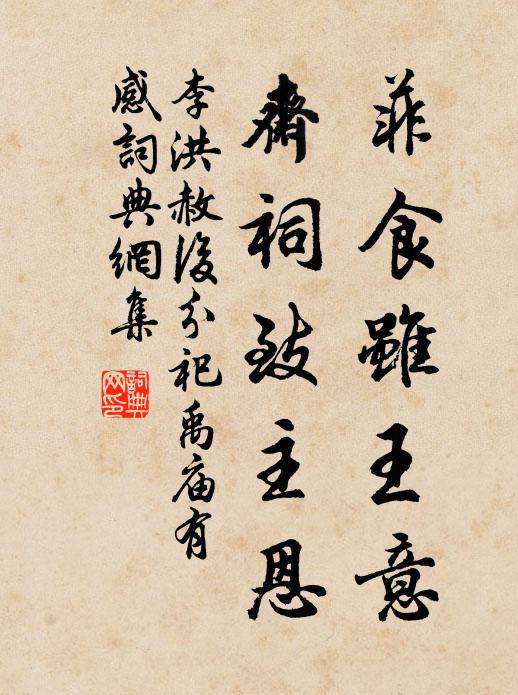 菲食雖王意
齋祠致主恩
李洪赦後分祀禹庙有
感詞典網集
詞典
网印